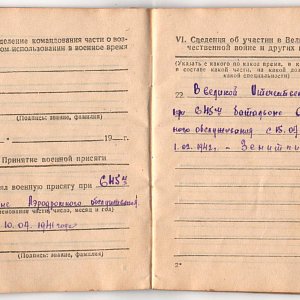 деление командования части о воз-
ом использовании в военное время
(Подпись: звание, фамилия)
19 г.
Принятие военной присяги
л военную присягу при 645
не Аэродромного обслуживания
менование части, число, месяц и год)
10.04. 1941 года
(Подпись: звание, фамилия)
VI. Сведения об участии в Вели
чественной войне и других
(Указать с какого по какое время, в к
в составе какой части, на какой до
какой специальности)
22. В великой Отечествен
при 645 батальоне
ного обслуживания с 15.0
1.02. 1942. - Зенитч
2*